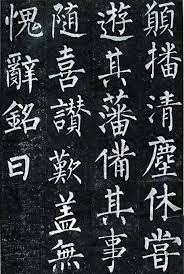 願播清塵休嘗
遊其藩備其事
隨喜讚歎盖無
愧辭銘曰